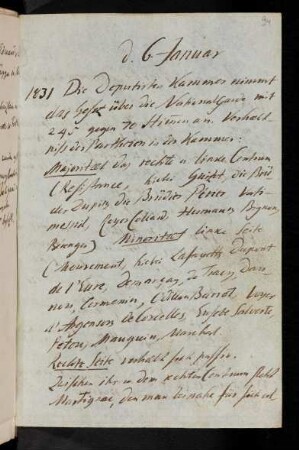 d. 6 Januar
1831 Die Deputirten Kammer nimmt
das Gesetz über die Nationalgarde mit
245 gegen 70 Stimen an. Verhält-
niß der Partheien in der Kammer:
Majoritaet das rechte u linke Centrum
(Resistance, Guizot, die Brü
der Dupin, die Brüder Perier
mesnil, Royer Collard
Beranger) Minoritaet linke Seite
(Mouvement, Lafayette Dupont
de l'Eure, Demarçay, de Tracy, Dau-
nou, Cormenin, Odillon Barrot, Voyer
d'Argenson Delabords, Eusebe Salverte
Peton, Mauguin, Marchal.
Rechte Seite verhält sich passiv.
Zwischen ihr u dem rechten Centrum steht
Martignac, den man beinahe für